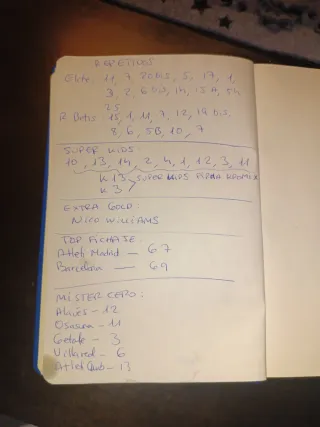 REPETIDOS
11, 7, 20 Bis, 5, 17, 1,
3, 2, 6 Bis, 14, 15A, 54
25
R. Betis 15, 1, 11, 7, 12, 19 Bis,
8, 6, 5B, 10, 7
SUPER KIDS:
10, 13, 14, 2, 4, 1, 12, 3, 11
K 13 SUPER KIDS
K 3
EXTRA GOLD:
NICO WILLIAMS
TOP FICHAJE:
Atleti Madrid — 67
Barcelona — 69
MÍSTER CERO:
Alavés - 12
Osasuna - 11
Getafe - 3
Villareal - 6
Atleti Club - 13